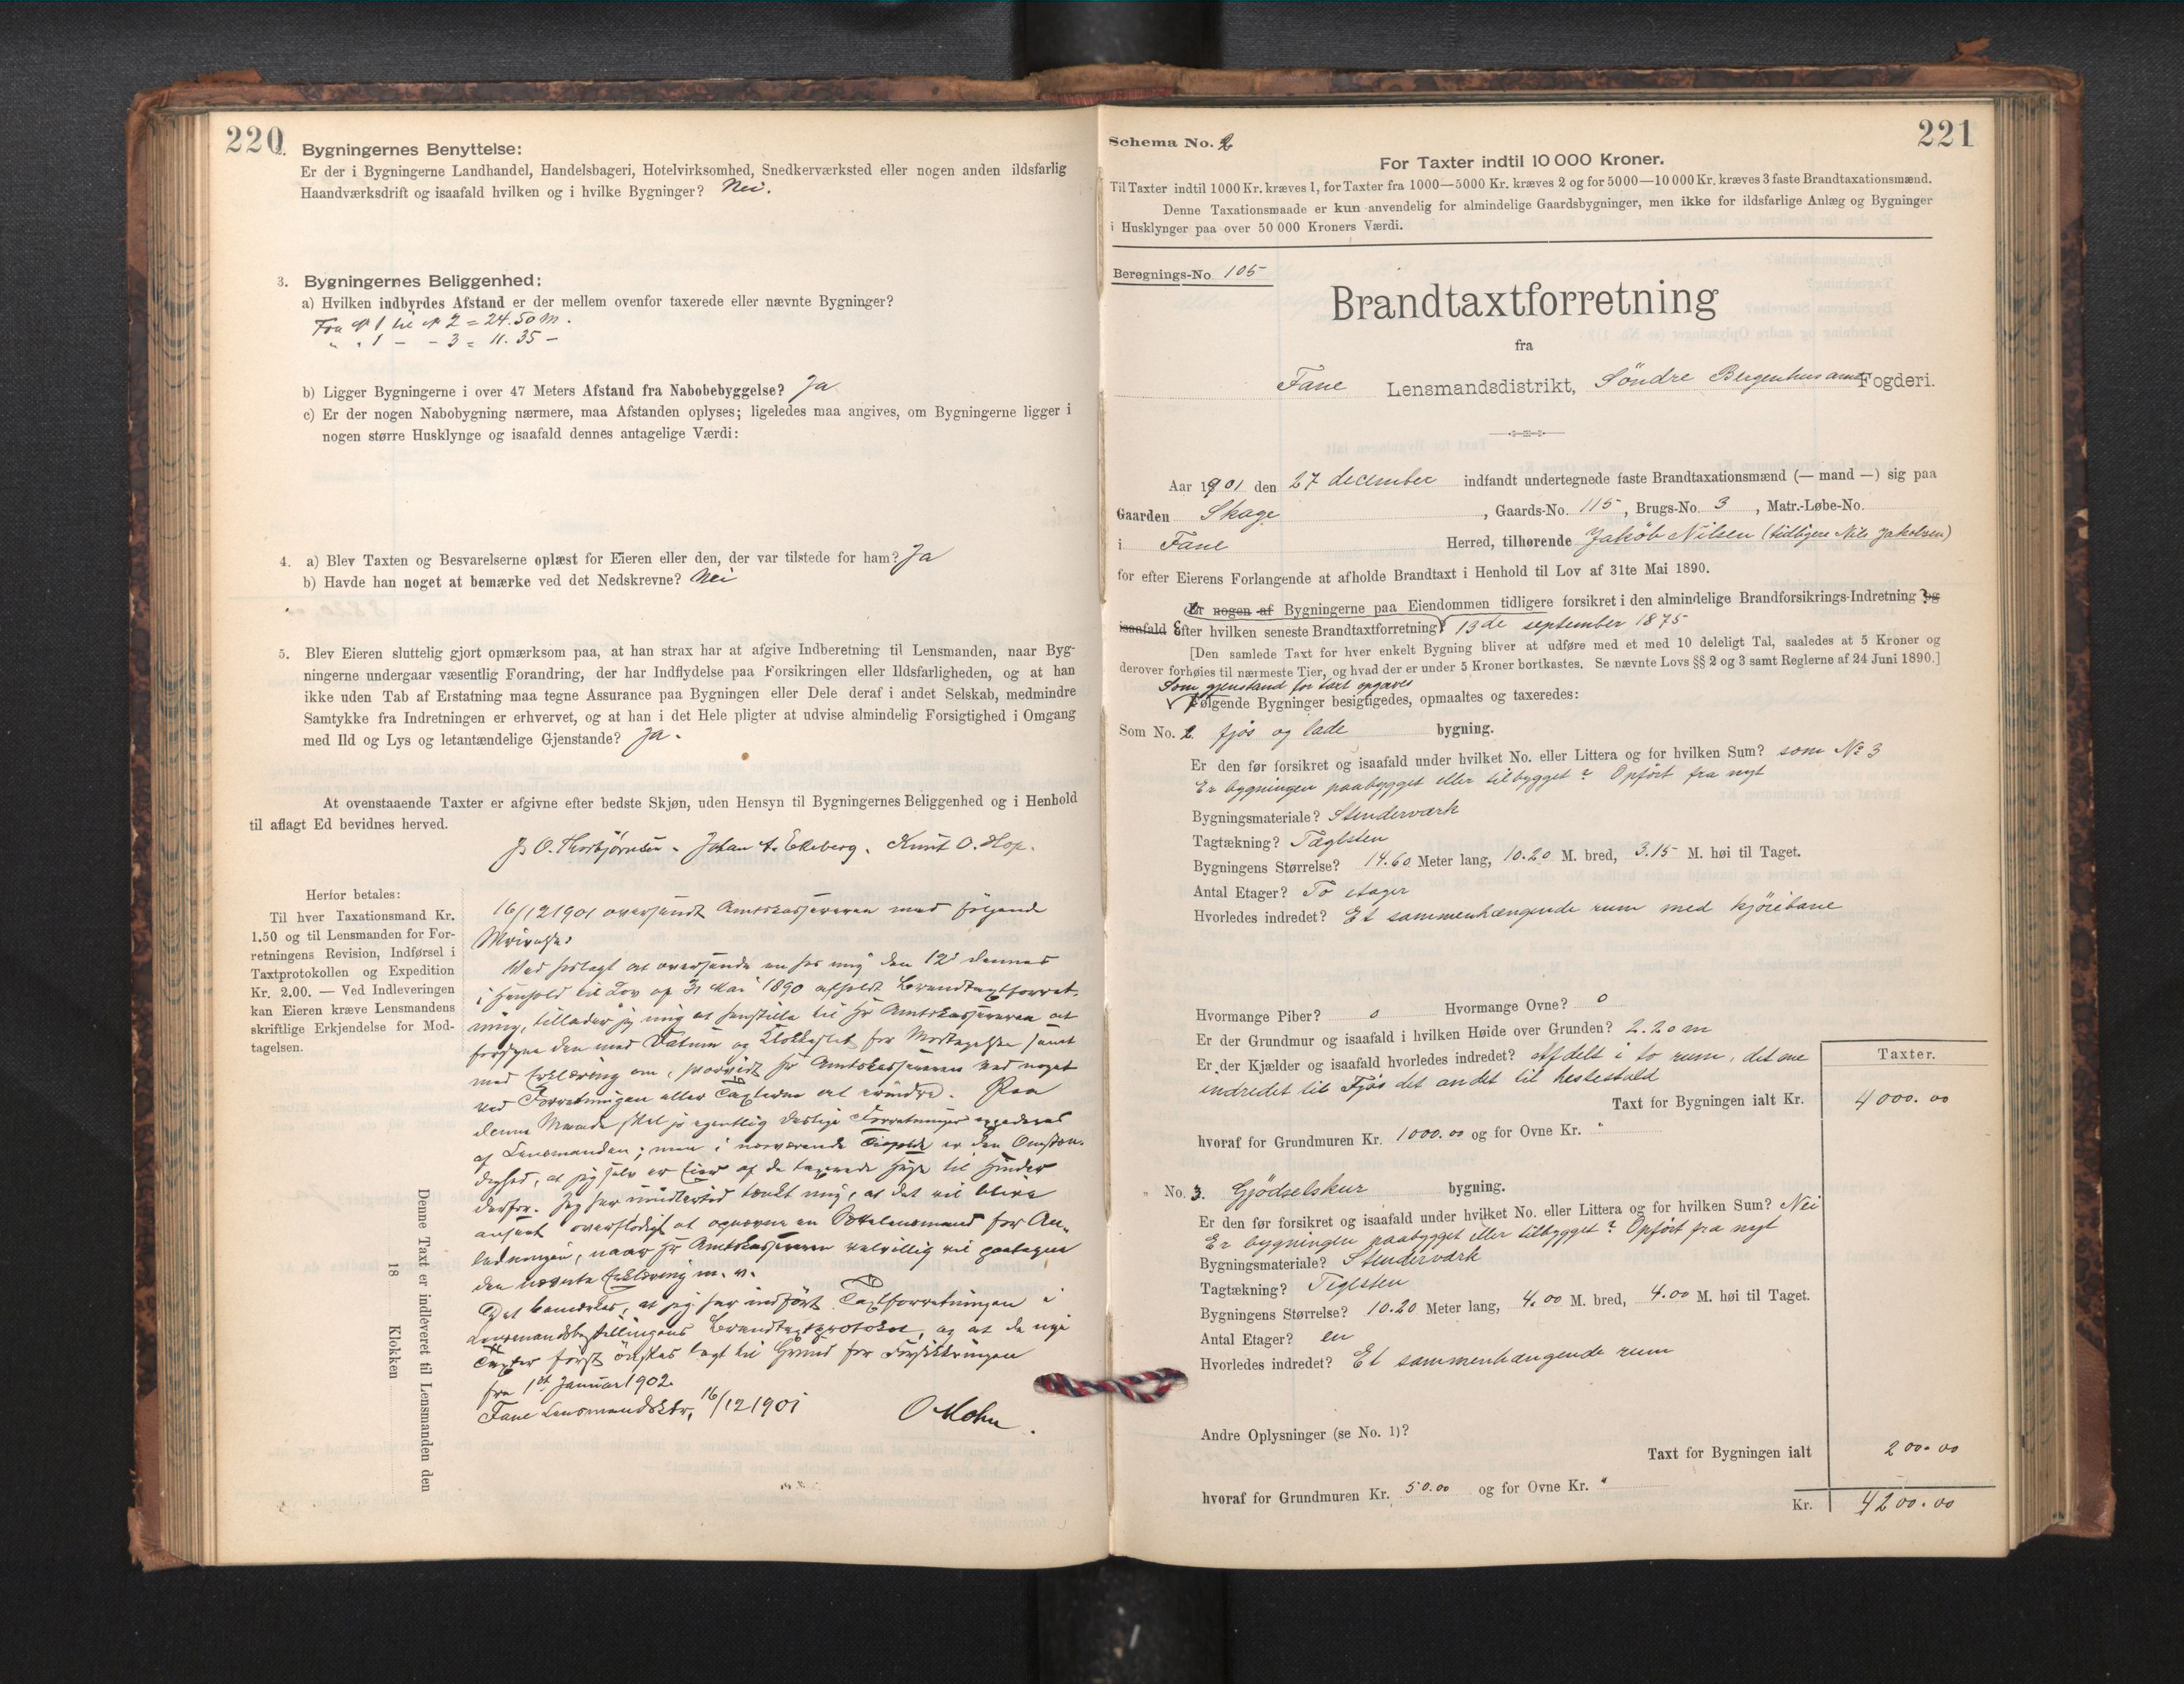 220
2. Bygningernes Benyttelse:
Er der i Bygningerne Landhandel, Handelsbageri, Hotelvirksomhed, Snedkerværksted eller nogen anden ildsfarlig
Haandværksdrift og isaafald hvilken og i hvilke Bygninger? Nei.
3. Bygningernes Beliggenhed:
a) Hvilken indbyrdes Afstand er der mellem ovenfor taxerede eller nævnte Bygninger?
Fra № 1 til № 2 = 24.50 m.
" " 1 – - 3 = 11.35 –
b) Ligger Bygningerne i over 47 Meters Afstand fra Nabobebyggelse? Ja
c) Er der nogen Nabobygning nærmere, maa Afstanden oplyses; ligeledes maa angives, om Bygningerne ligger i
nogen større Husklynge og isaafald dennes antagelige Værdi:
4. a) Blev Taxten og Besvarelserne oplæst for Eieren eller den, der var tilstede for ham? Ja
b) Havde han noget at bemærke ved det Nedskrevne? Nei
5. Blev Eieren sluttelig gjort opmærksom paa, at han strax har at afgive Indberetning til Lensmanden, naar Byg-
ningerne undergaar væsentlig Forandring, der har Indflydelse paa Forsikringen eller Ildsfarligheden, og at han
ikke uden Tab af Erstatning maa tegne Assurance paa Bygningen eller Dele deraf i andet Selskab, medmindre
Samtykke fra Indretningen er erhvervet, og at han i det Hele pligter at udvise almindelig Forsigtighed i Omgang
med Ild og Lys og letantændelige Gjenstande? Ja.
At ovenstaaende Taxter er afgivne efter bedste Skjøn, uden Hensyn til Bygningernes Beliggenhed og i Henhold
til aflagt Ed bevidnes herved.
O. Thorbjørnsen. Johan A. Ekeberg. Knut O. Hop.
Herfor betales:
Til hver Taxationsmand Kr.
1.50 og til Lensmanden for For-
retningens Revision, Indførsel i
Taxtprotokollen og Expedition
Kr. 2.00. — Ved Indleveringen
kan Eieren kræve Lensmandens
skriftlige Erkjendelse for Mod-
tagelsen.
Denne Taxt er indleveret til Lensmanden den
18 Klokken
16/12 1901 oversendt Amtskassereren med følgende
Skrivelse:
Ved herlagt at oversende en hos mig den 12' dennes
i Henhold til Lov af 31 Mai 1890 afholdt Brandtaxtforret-
ning, tillader jeg mig at henstille til Hr Amtskassereren at
forsyne den med Datum og Klokkeslet for Modtagelse samt
med Erklæring om, hvorvidt Hr Amtskassereren har noget
ved Forretningen eller Taxterne at erindre. Paa
denne Maade skal jo egentlig deslige Forretninger
af Lensmanden; men i nærværende Tilfælde er den Omstæn-
dighed, at jeg selv er Eier af de taxerede Huse til Hinder
derfor. Jeg har imidlertid tænkt mig, at det vil blive
anseet overflødigt at opnævne en Sættelensmand for An-
ledningen, naar Hr Amtskassereren velvilligt vil paategne
den nævnte Erklæring m. v.
Det bemærkes, at jeg har indført Taxtforretningen i
Lensmandsbestillingens Brandtaxtprotokol, og at de nye
Taxter først ønskes lagt til Grund for Forsikringen
fra 1st Januar 1902.
Fane Lensmandsktr, 16/12 1901
O Mohn.
221
Schema No. 2
For Taxter indtil 10 000 Kroner.
Til Taxter indtil 1000 Kr. kræves 1, for Taxter fra 1000—5000 Kr. kræves 2 og for 5000—10 000 Kr. kræves 3 faste Brandtaxationsmænd.
Denne Taxationsmaade er kun anvendelig for almindelige Gaardsbygninger, men ikke for ildsfarlige Anlæg og Bygninger
i Husklynger paa over 50 000 Kroners Værdi.
Beregnings-No. 105
Brandtaxtforretning
fra
Fane Lensmandsdistrikt, Söndre Bergenhus amts Fogderi.
Aar 1901 den 27 december indfandt undertegnede faste Brandtaxationsmænd (— mand —) sig paa
Gaarden Skage, Gaards-No. 115, Brugs-No. 3, Matr.-Løbe-No.
i Fane Herred, tilhørende Jakob Nilsen (tidligere Nils Jakobsen)
for efter Eierens Forlangende at afholde Brandtaxt i Henhold til Lov af 31te Mai 1890.
Er nogen af Bygningerne paa Eiendommen tidligere forsikret i den almindelige Brandforsikrings-Indretning og
isaafald efter hvilken seneste Brandtaxtforretning? 13de september 1875
[Den samlede Taxt for hver enkelt Bygning bliver at udføre med et med 10 deleligt Tal, saaledes at 5 Kroner og
derover forhøies til nærmeste Tier, og hvad der er under 5 Kroner bortkastes. Se nævnte Lovs §§ 2 og 3 samt Reglerne af 24 Juni 1890.]
Som gjenstand for taxt opgaves
Følgende Bygninger besigtigedes, opmaaltes og taxeredes:
Som No. 2. fjøs og lade bygning.
Er den før forsikret og isaafald under hvilket No. eller Littera og for hvilken Sum? som № 3
Er bygningen paabygget eller tilbygget? Opført fra nyt
Bygningsmateriale? Stenderværk
Tagtækning? Tæglsten
Bygningens Størrelse? 14.60 Meter lang, 10.20 M. bred, 3.15 M. høi til Taget.
Antal Etager? To etager
Hvorledes indredet? Et sammenhængende rum med kjörebane
Hvormange Piber? 0 Hvormange Ovne? 0
Er der Grundmur og isaafald i hvilken Høide over Grunden? 2.20 m
Er der Kjælder og isaafald hvorledes indredet? Afdelt i to rum, det ene
indredet til Fjös det andet til hestestald
Taxter.
Taxt for Bygningen ialt Kr. 4000.00
hvoraf for Grundmuren Kr. 1000.00 og for Ovne Kr. "
" No. 3. Gjödselskur bygning.
Er den før forsikret og isaafald under hvilket No. eller Littera og for hvilken Sum? Nei
Er bygningen paabygget eller tilbygget? Opført fra nyt
Bygningsmateriale? Stenderværk
Tagtækning? Teglsten
Bygningens Størrelse? 10.20 Meter lang, 4.00 M. bred, 4.00 M. høi til Taget.
Antal Etager? en
Hvorledes indredet? Et sammenhængende rum
Andre Oplysninger (se No. 1)?
Taxt for Bygningen ialt 200.00
hvoraf for Grundmuren Kr. 50.00 og for Ovne Kr. "
Kr. 4200.00